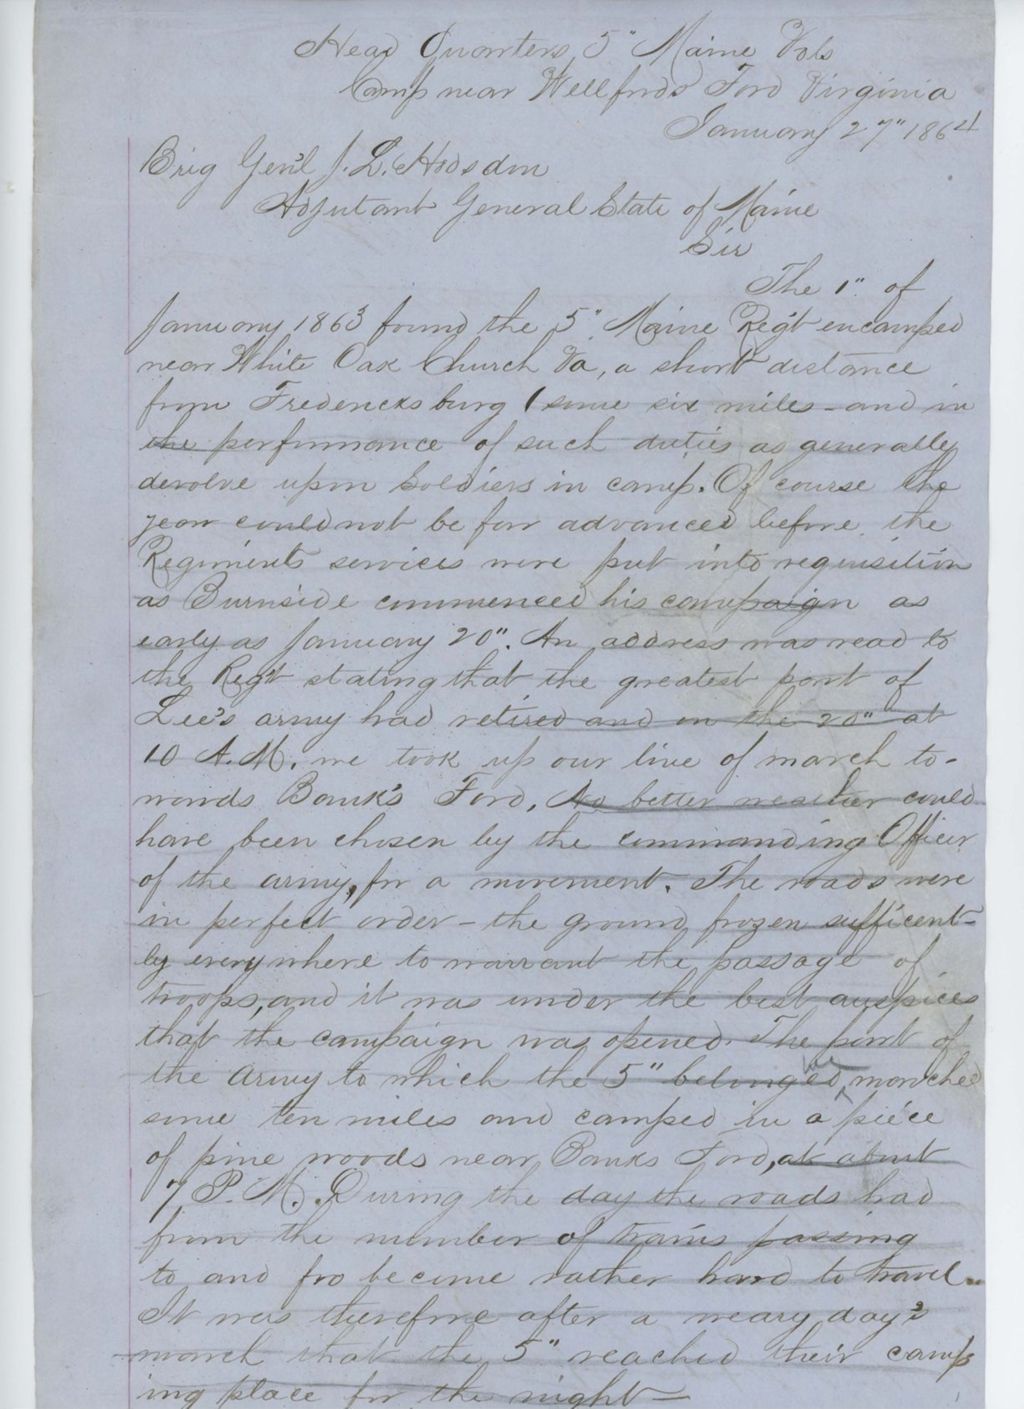 Head Quarters 5" Maine Vols
Camp near Wellfords Ford Virginia
January 27" 1864
Brig Gen'l J. L. Hodsdon
Adjutant General State of Maine
Sir
The 1" of
January 1863 found the 5" Maine Reg't encamped
near White Oak Church Va, a short distance
from Fredericksburg (some six miles - and in
the performance of such duties as generally
devolve upon Soldiers in camp. Of course the
year could not be far advanced before the
Regiments services were put into requisition
as Burnside commenced his campaign as
early as January 20". An address was read to
the Reg't stating that the greatest part of
Lee's army had retired and on the 20" at
10 A.M. we took up our line of march to-
wards Bank's Ford. No better weather could
have been chosen by the commanding Officer
of the army, for a movement. The roads were
in perfect order - the ground frozen sufficent-
ly everywhere to warrant the passage of
troops, and it was under the best auspices
that the campaign was opened. The part of
the Army to which the 5" belonged, marched
some ten miles and camped in a piece
of pine woods near Banks Ford, at about
7 P. M. During the day the roads had
from the number of trains passing
to and fro become rather hard to travel.
It was therefore after a weary day's
march that the 5" reached their camp
ing place for the night -